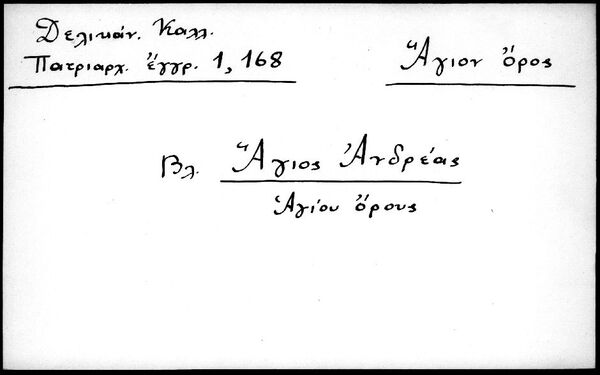 Δελικάν. Καλλ.
Πατριαρχ. ἔγγρ. 1, 168
Ἅγιον ὄρος
Βλ. Ἅγιος Ἀνδρέας
Ἁγίου ὄρους